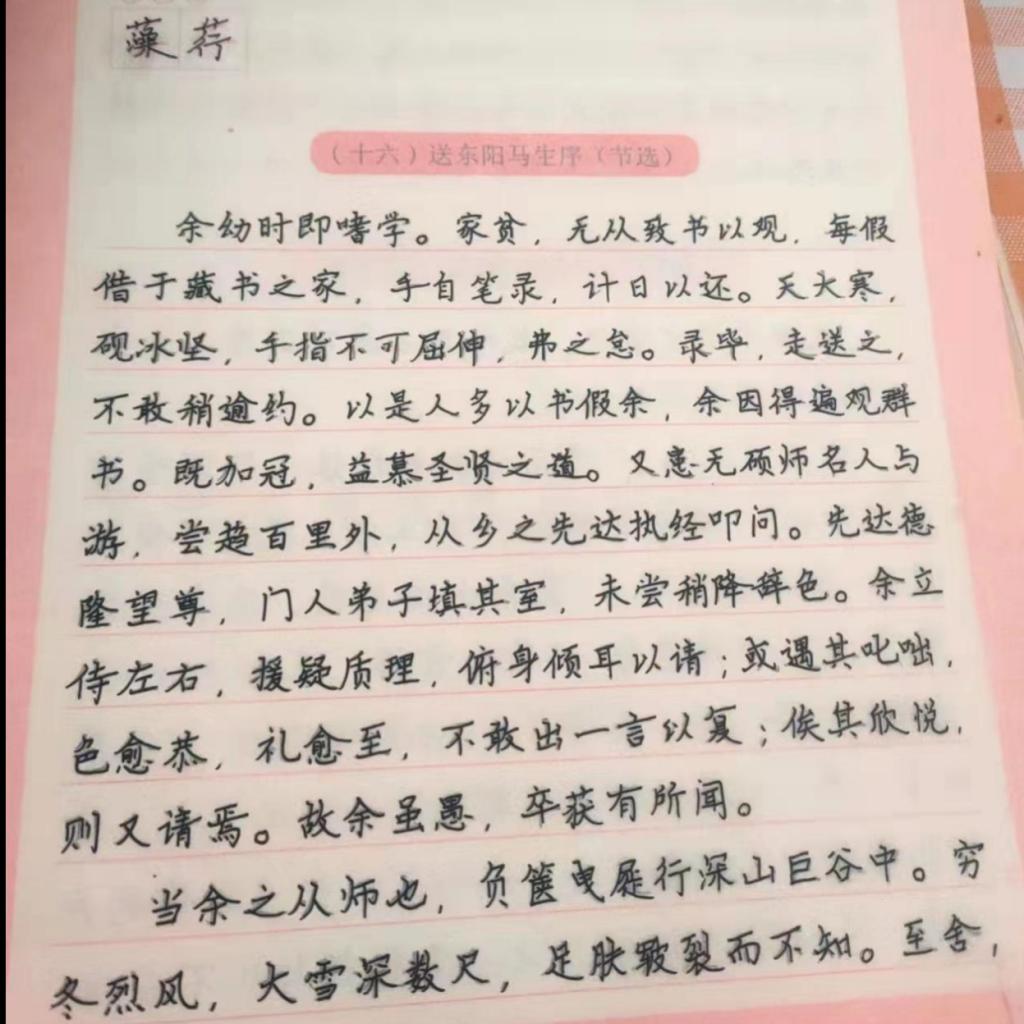 藻荇
（十六）送东阳马生序（节选）
余幼时即嗜学。家贫，无从致书以观，每假
借于藏书之家，手自笔录，计日以还。天大寒，
砚冰坚，手指不可屈伸，弗之怠。录毕，走送之，
不敢稍逾约。以是人多以书假余，余因得遍观群
书。既加冠，益慕圣贤之道。又患无硕师名人与
游，尝趋百里外，从乡之先达执经叩问。先达德
隆望尊，门人弟子填其室，未尝稍降辞色。余立
侍左右，援疑质理，俯身倾耳以请；或遇其叱咄，
色愈恭，礼愈至，不敢出一言以复；俟其欣悦，
则又请焉。故余虽愚，卒获有所闻。
当余之从师也，负箧曳屣行深山巨谷中。穷
冬烈风，大雪深数尺，足肤皲裂而不知。至舍，